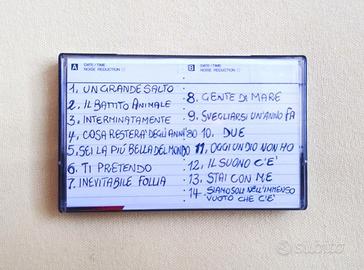 A DATE/TIME
NOISE REDUCTION
B DATE/TIME
NOISE REDUCTION
1. UN GRANDE SALTO
2. IL BATTITO ANIMALE
3. INTERMINATAMENTE
4. COSA RESTERÀ DEGLI ANNI '80
5. SEI LA PIÙ BELLA DEL MONDO
6. TI PRETENDO
7. INEVITABILE FOLLIA
8. GENTE DI MARE
9. SVEGLIARSI UN'ANNO FA
10. DUE
11. OGGI UN DIO NON HO
12. IL SUONO C'E'
13. STAI CON ME
14. SIAMO SOLI NELL'IMMENSO
VUOTO CHE C'E'
subito.it